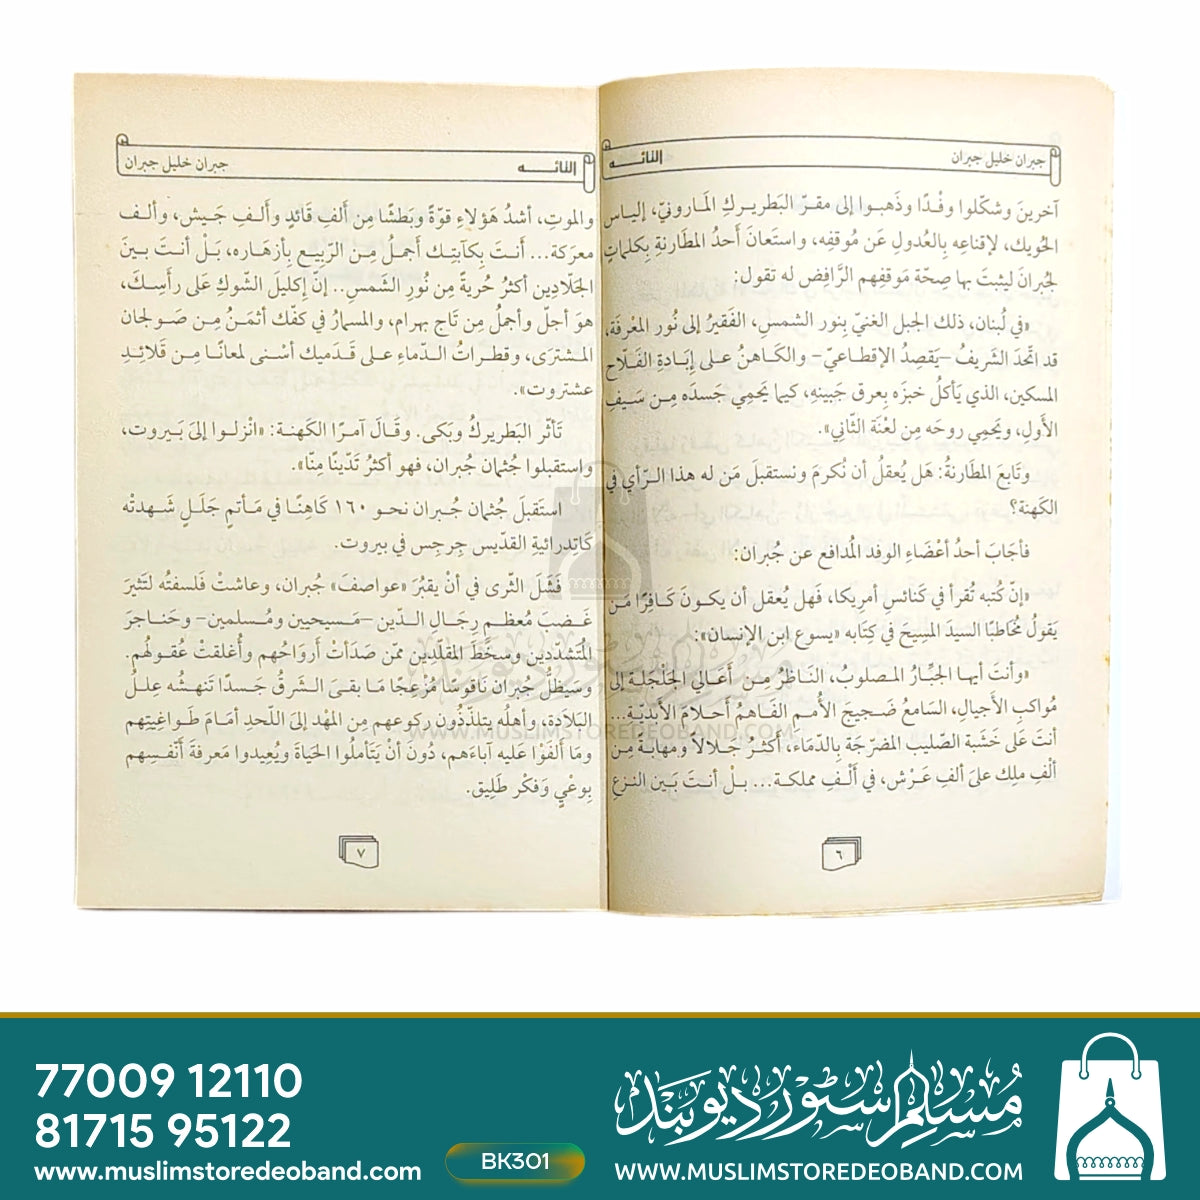 جبران خليل جبران
التائـــــه
آخرينَ وشكّلوا وفْـدًا وذَهبـوا إلى مقـرّ البَطريـركِ المَارونيّ، إليـاس
الحُويك، لإقناعِه بِالعُدولِ عَن مُوقفِه، واستَعانَ أَحدُ المطَارنةِ بِكلماتٍ
لجُبرانَ ليثبتَ بها صِحّة مَوقفِهم الرَّافِض له تقول:
«في لُبنان، ذلك الجبل الغنيّ بِنور الشمسِ، الفَقيرُ إلى نُور المعْرفَة،
قد اتّحدَ الشَريفُ –يَقصِدُ الإقطاعيّ– والكَاهنُ على إبَادةِ الفَلّاح
المسكين، الذي يَأكلُ خبزَه بِعرق جَبينهِ، كيما يَحمِي جَسدَه مِـن سَـيفِ
الأَولِ، ويَحمِي روحَه مِن لَعْنَة الثَّاني».
وتَابعَ المطَارنةُ: هَل يُعقلُ أن نُكرمَ ونستقبلَ مَن له هذا الـرّأي في
الكَهنة؟
فأجَابَ أحدُ أعْضَاءِ الوفد المُدافع عن جُبران:
«إنّ كُتبه تُقرأ في كَنائسِ أمرِيكا، فَهل يُعقل أن يكـونَ كَـافِرًا مَـن
يَقولُ مُخاطبًا السيدَ المسِيحَ في كِتَابه «يسوع ابن الإنسان»:
«وأنتَ أيهـا الجبَّـار المـصلوبُ، النَّاظرُ مِـن أَعَـالي الجُلجَلـة إلى
مُواكبِ الأَجيالِ، السَامعُ ضَـجيجَ الأُمـم الفَـاهمُ أَحـلامَ الأبديّـة...
أنتَ عَلى خَشَبة الصّليب المضرّجَة بِالدّمَاء، أكثـرُ جَـلالاً ومهابـةً مِـن
ألْفِ ملِك علىَ ألفِ عَـرْش، في أَلْـفِ مملكـة... بـلْ أنـتَ بَـين النـزعِ
٦
التائـــــه
جبران خليل جبران
والموتِ، أشدُ هَؤلاءِ قوّةً وبَطشًا مِن أَلفِ قَائدٍ وأَلـفِ جَـيش، وأَلـف
معرَكة... أَنـتَ بِكآبتِـك أجمـلُ مِـن الرّبيـع بِأزهَـاره، بَـلْ أنـتَ بـينَ
الجَلّادِين أكثرُ حُريةً مِن نُورِ الشَمسِ.. إنّ إكليلَ الشّوكِ عَلى رَأسِـكَ،
هـوَ أجلّ وأجملُ مِن تَاج بهرام، والمسمارُ في كفّك أثمَـنُ مِـن صَـولجان
المـشترَى، وقطـراتُ الـدّماءِ عـلى قَـدَميك أسْـنى لمعانًـا مِـن قَلائـدِ
عشتروت».
تَأثّر البَطريركُ وبَكى. وقَـالَ آمـرًا الكَهنـة: «انْزلـوا إلىَ بَـيروت،
واستقبلوا جُثمان جُبران، فهو أكثرُ تَديّنًا مِنّا».
استَقبلَ جُثمان جُـبران نحـو ١٦٠ كَاهِنًـا في مَـأتمٍ جَلَـلٍ شَـهدتْه
كَاتدرائية القدّيس جِرجِس في بيروت.
فَشَلَ الثّرى في أنْ يقبُرَ «عواصفَ» جُبران، وعاشتْ فَلسفتُه لتَثيرَ
غَـضبَ مُعظـمِ رِجَـال الـدّين –مَـسيحيين ومُـسلمين– وخَنـاجرَ
المُتشدّدين وسَخَطَ المقلّدِين ممّن صَدَأتْ أروَاحُهم وأُغلقتْ عُقولهُم.
وسَيظلُّ جُبران نَاقوسًا مُزْعِجًا مَـا بقـىَ الـشَرقُ جَـسدًا تَنهـشُه عِلـلُ
البَلادَة، وأهلُه يتلذّذُون ركوعهم مِن المهْد إلىَ اللّحدِ أمَـامَ طَـواغِيتِهم
ومَا ألفَوْا عَليه آباءَهم، دُونَ أنْ يَتَأملُوا الحَيَاةَ ويُعِيدوا مَعرفـةَ أَنْفسِـهم
بِوعْيٍ وَفكْر طَلِيق.
٧
WWW.MUSLIMSTOREDEOBAND.COM
77009 12110
81715 95122
www.muslimstoredeoband.com
BK301
مسلم سٹور دیوبند
WWW.MUSLIMSTOREDEOBAND.COM